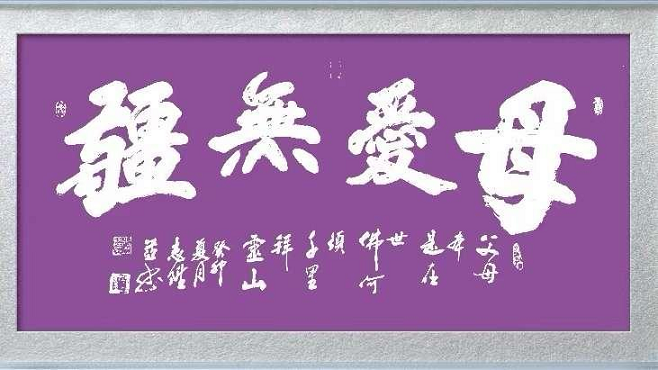 母愛無疆
父母
本
是在
世
佛何
須
千里
拜
靈山
癸卯
夏月